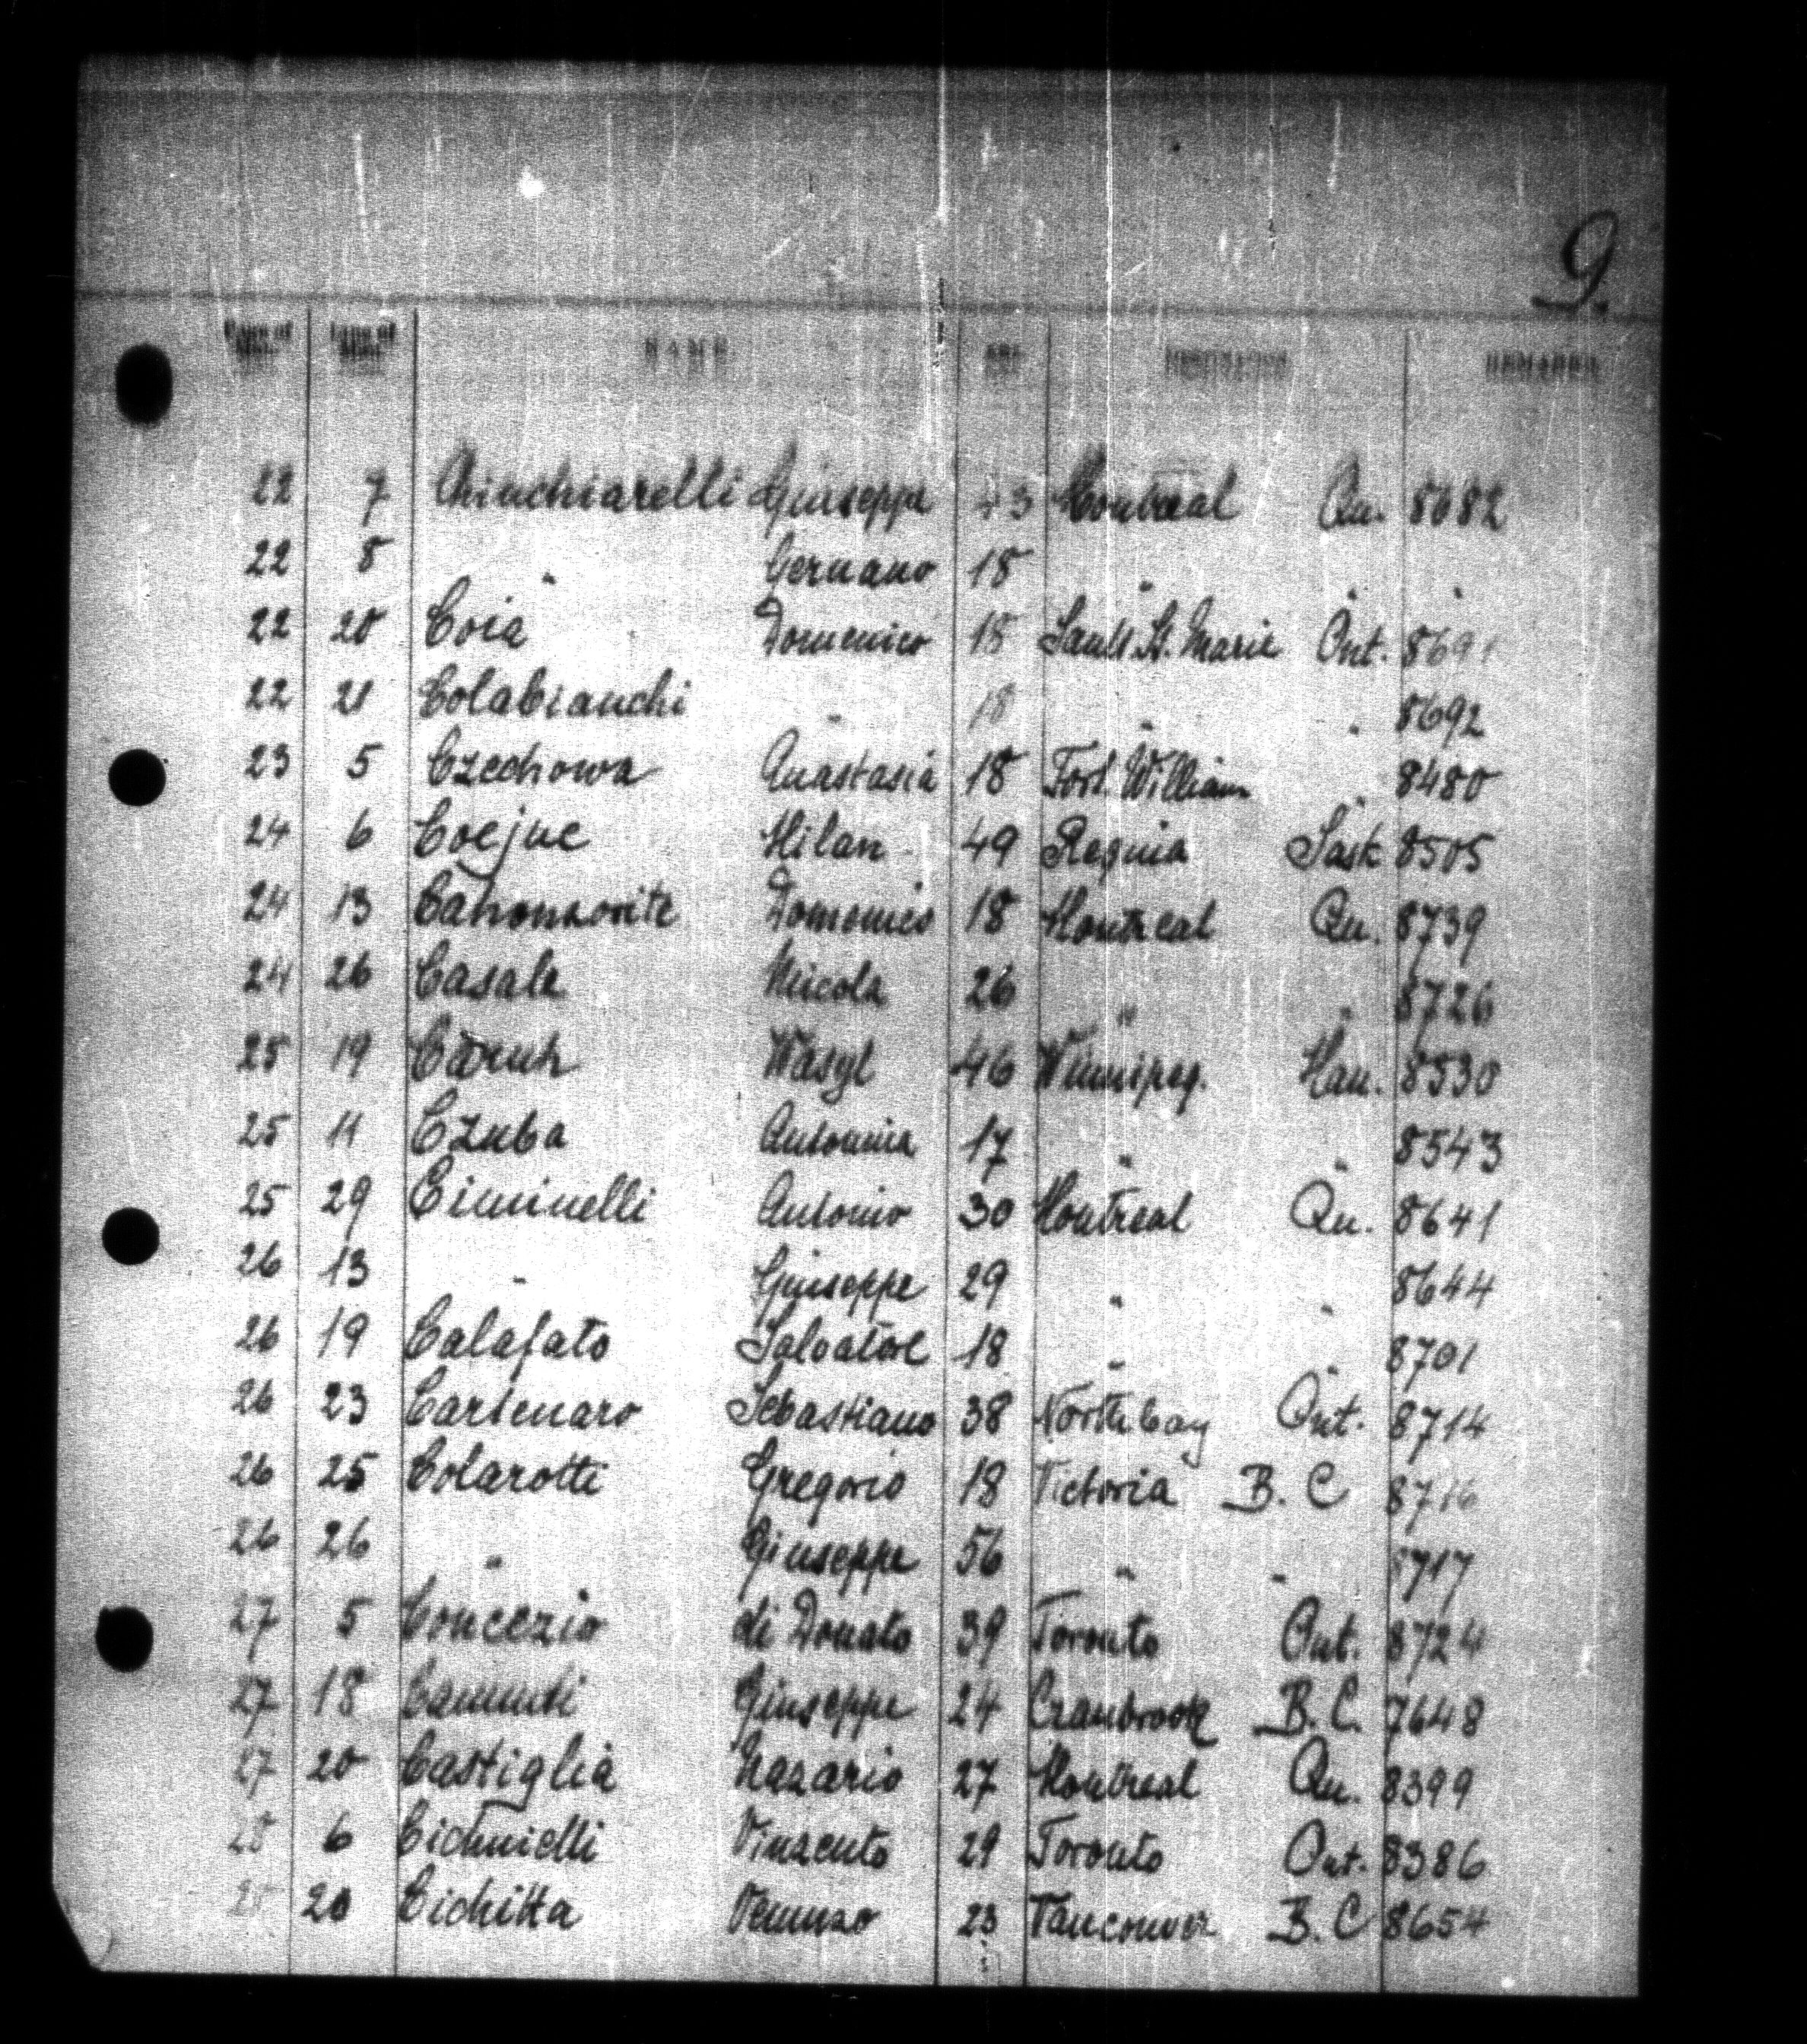 9.
NAME AGE REMARKS
22 7 Chinchiarelli Giuseppe 43 Montreal Qu. 8682
22 8 " Germano 18 " " "
22 20 Coia Domenico 18 Sault St. Marie Ont. 8691
22 21 Colabianchi " 18 " " 8692
23 5 Czechowa Anastasia 18 Fort. William " 8480
24 6 Milan 49 Regina Sask 8505
24 13 Domenico 18 Montreal Qu. 8739
24 26 Casale Nicola 26 " " 8726
25 19 Wasyl 46 Winnipeg. Man. 8530
25 11 Czuba Antonina 17 " " 8543
25 29 Ciminelli Antonio 30 Montreal Qu. 8641
26 13 " Giuseppe 29 " " 8644
26 19 Calafato Salvatore 18 " " 8701
26 23 Cartenaro Sebastiano 38 Northbay Ont. 8714
26 25 Colarotti Gregorio 18 Victoria B. C 8716
26 26 " Giuseppe 56 " " 8717
27 5 Concezio di Donato 39 Toronto Ont. 8724
27 18 Giuseppe 24 Cranbrook B. C. 7648
27 20 Castiglia Nazario 27 Montreal Qu. 8399
28 6 Vinzento 29 Toronto Ont. 8386
28 20 Cichitta 23 Vancouver B. C 8654